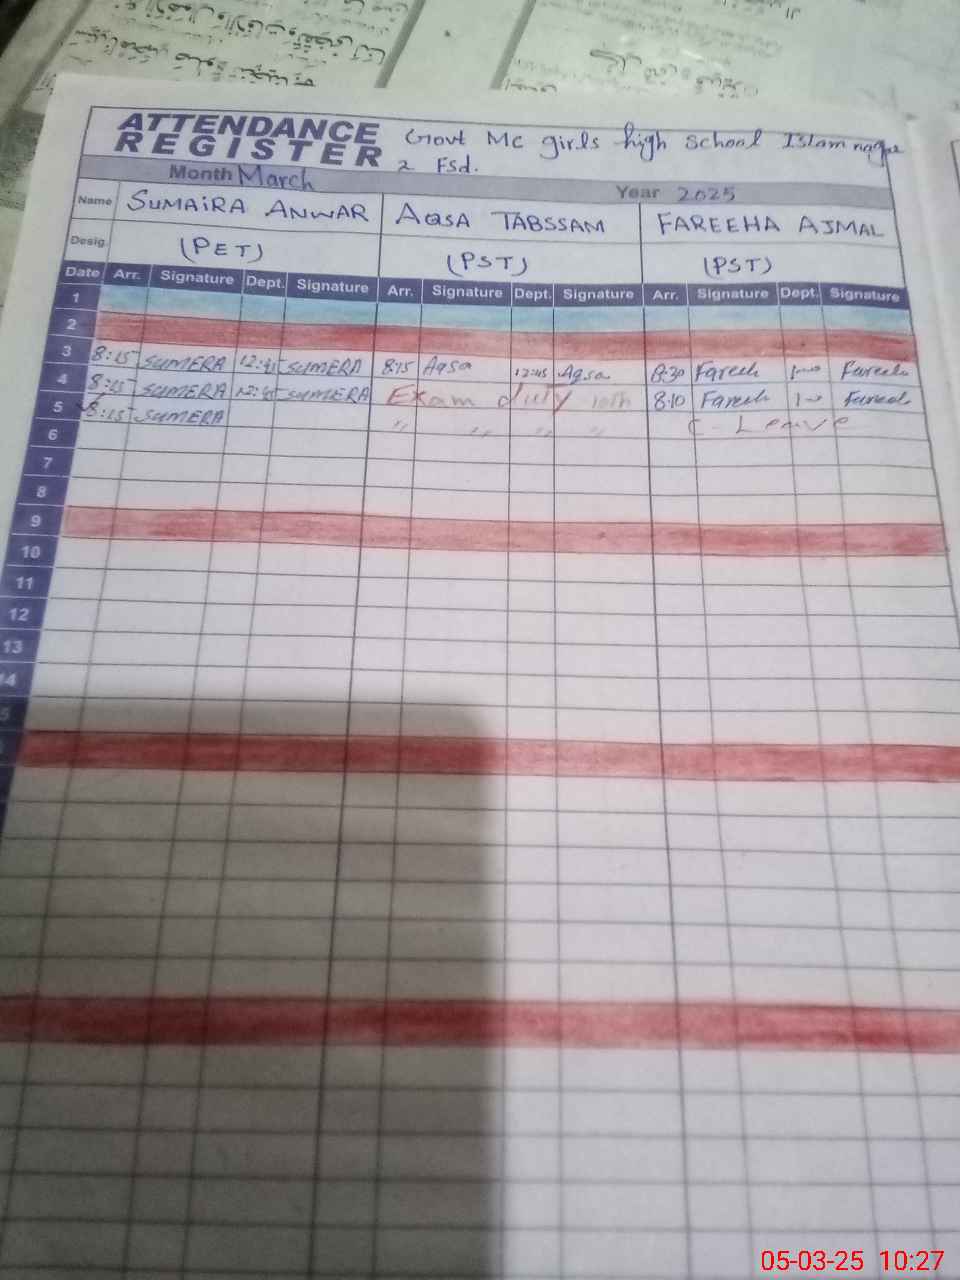 ATTENDANCE REGISTER
Govt Mc girls high School Islam nagar
2 Fsd.
Month March Year 2025
Name SUMAIRA ANWAR AQSA TABSSAM FAREEHA AJMAL
Desig. (PET) (PST) (PST)
Date Arr. Signature Dept. Signature Arr. Signature Dept. Signature Arr. Signature Dept. Signature
1
2
3 8:15 SUMERA 12:45 SUMERA 8:15 Aqsa 12:45 Aqsa 8:30 Fareeh 1-00 Fareeh
4 8:15 SUMERA 12:45 SUMERA Exam duty 10th 8:10 Fareeh 1-00 Fareeh
5 8:15 SUMERA " " " " C-Leave
6
7
8
9
10
11
12
13
14
5
05-03-25 10:27